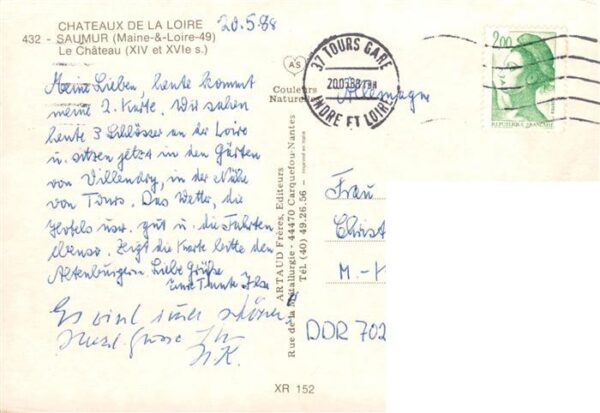 CHATEAUX DE LA LOIRE
432 - SAUMUR (Maine-&-Loire-49)
Le Château (XIV et XVIe s.)
20.5.88
Meine Lieben, heute kommt
meine 2. Karte. Wir sahen
heute 3 Schlösser an der Loire
u. sitzen jetzt in den Gärten
von Villandry, in der Nähe
von Tours. Das Wetter, die
Hotels usw. gut u. die Fahrten
ebenso. Zeigt die Karte bitte den
Altenburgern. Liebe Grüße
Eure Tante Ilse
Es wird immer schöner!
Herzl. Grüsse Ihr
H.K.
AS
Couleurs
Naturelles
ARTAUD Frères, Editeurs
Rue de la Métallurgie - 44470 Carquefou-Nantes
Tél (40) 49.26.56 -
XR 152
37 TOURS GARE
INDRE ET LOIRE
2,00
REPUBLIQUE FRANÇAISE
Allemagne
Frau
Christ
M.-K
DDR 702